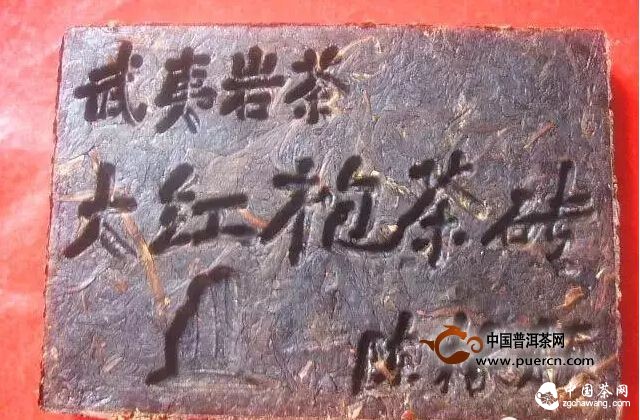 武夷岩茶
大红袍茶砖
陈
中国普洱茶网
www.puercn.com
中国茶网
zgchawang.com